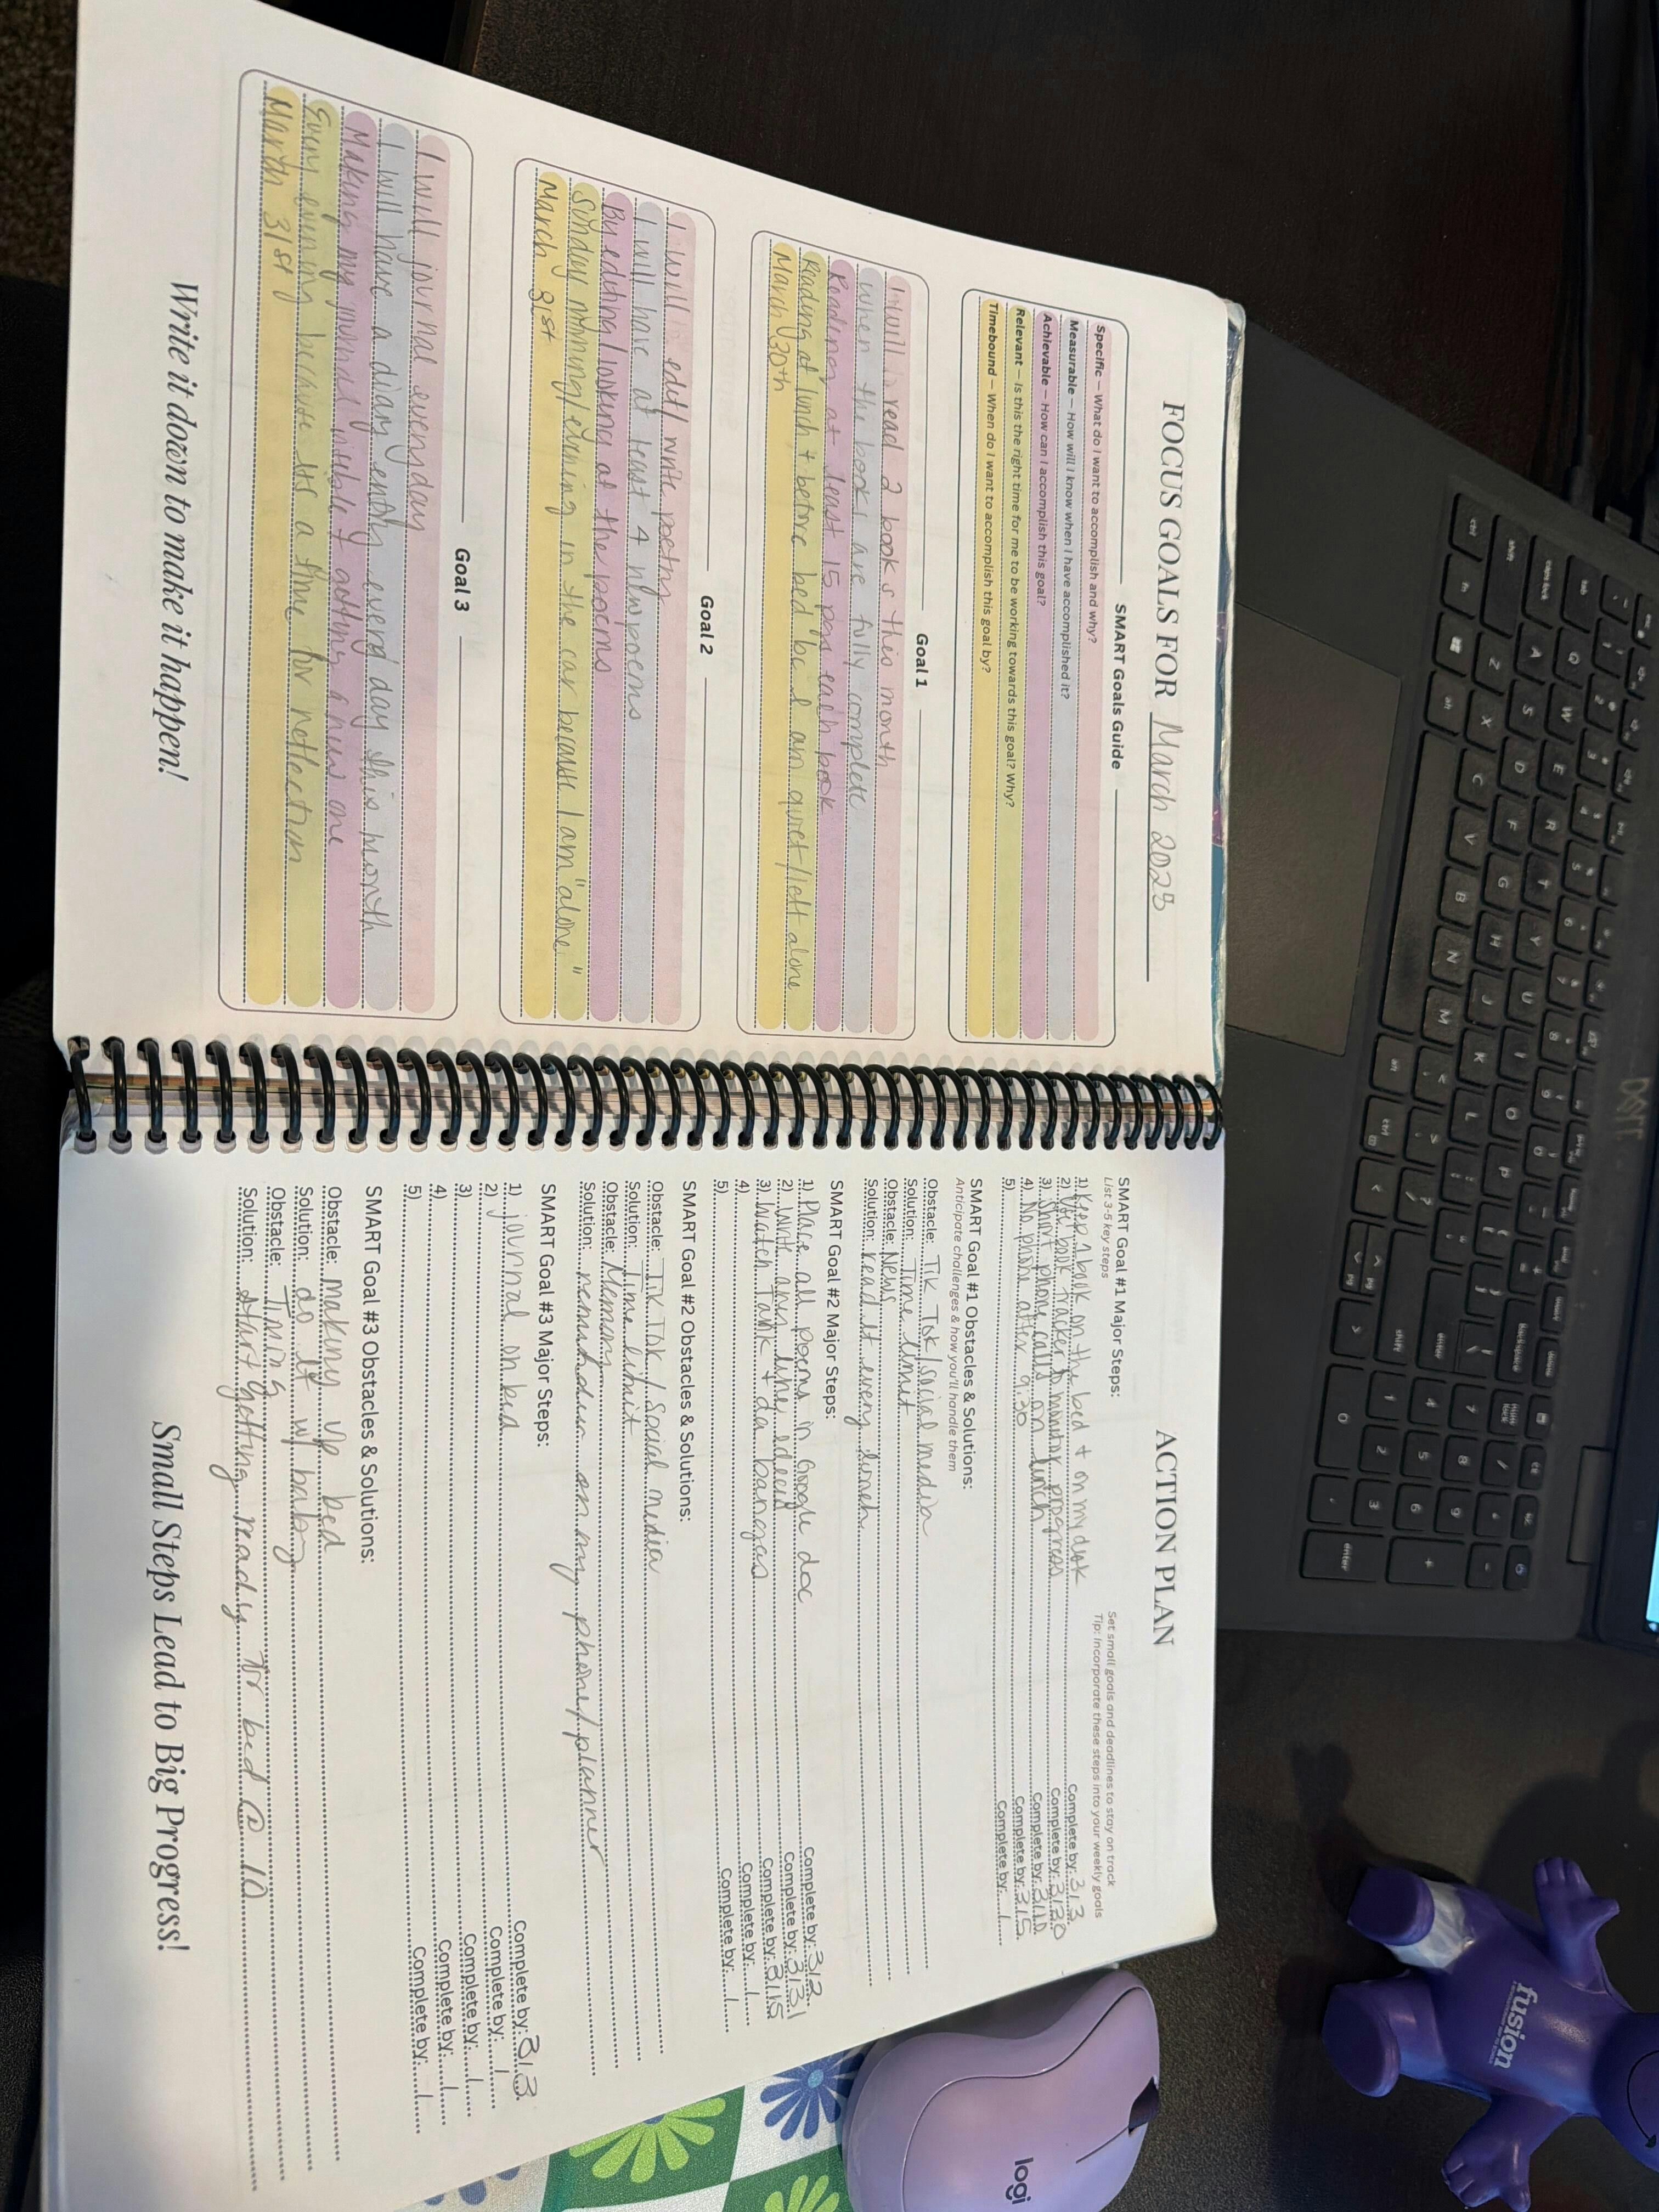 FOCUS GOALS FOR March 2025
SMART Goals Guide
Specific — What do I want to accomplish and why?
Measurable — How will I know when I have accomplished it?
Achievable — How can I accomplish this goal?
Relevant — Is this the right time for me to be working towards this goal? Why?
Timebound — When do I want to accomplish this goal by?
Goal 1
I will read 2 books this month
When the books are fully complete
Reading at least 15 pgs each book
Reading at lunch + before bed bc I am quiet/left alone
March 30th
Goal 2
I will edit/write poetry
I will have at least 4 new poems
By editing/looking at the poems
Sunday morning/evening in the car because I am "alone"
March 31st
Goal 3
I will journal everyday
I will have a diary entry every day this month
Making my journal visible + getting a new one
Every evening because its a time for reflection
March 31st
Write it down to make it happen!
ACTION PLAN
Set small goals and deadlines to stay on track
Tip: Incorporate these steps into your weekly goals
SMART Goal #1 Major Steps:
List 3-5 key steps
1) Keep 1 book on the bed + on my desk Complete by: 3/3
2) book tracker to monitor progress Complete by: 3/30
3) Short phone calls on lunch Complete by: 3/10
4) No phone after 9:30 Complete by: 3/5
5) Complete by: /
SMART Goal #1 Obstacles & Solutions:
Anticipate challenges & how you'll handle them
Obstacle: Tik Tok/social media
Solution: Time limit
Obstacle: News
Solution: read it every lunch
SMART Goal #2 Major Steps:
1) Place all poems in Google doc Complete by: 3/2
2) Write any lines/ideas Complete by: 3/31
3) Watch Tank + da bangas Complete by: 3/15
4) Complete by: /
5) Complete by: /
SMART Goal #2 Obstacles & Solutions:
Obstacle: Tik Tok/Social media
Solution: Time limit
Obstacle: Memory
Solution: reminders on my phone/planner
SMART Goal #3 Major Steps:
1) journal on bed Complete by: 3/3
2) Complete by: /
3) Complete by: /
4) Complete by: /
5) Complete by: /
SMART Goal #3 Obstacles & Solutions:
Obstacle: making up bed
Solution: do it w/ baby
Obstacle: Timing
Solution: start getting ready for bed @ 10
Small Steps Lead to Big Progress!
logi
fusion
DELL